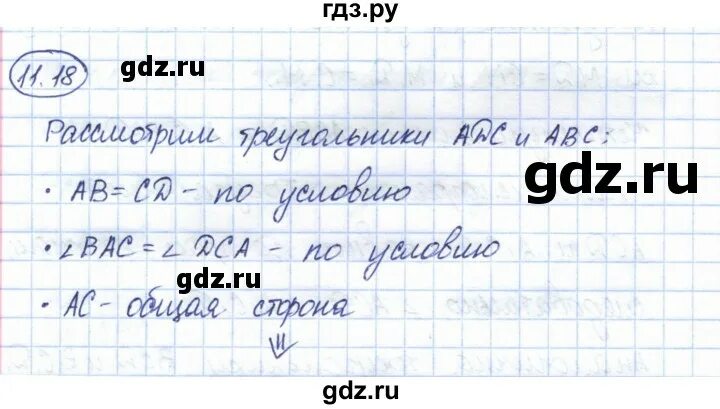 гдз.ру
11.18
gdz.ru
Рассмотрим треугольники ADC и ABC:
• AB = CD - по условию
gdz.ru
• ∠BAC = ∠DCA - по условию
gdz.ru
• AC - общая сторона
⇓
gdz.ru